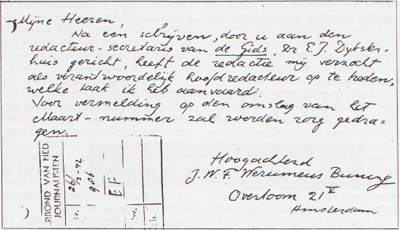 Mijne Heeren,
Na een schrijven, door u aan den
redacteur-secretaris van de Gids, Dr E.J. Dykster-
huis gericht, heeft de redactie mij verzocht
als verantwoordelijk hoofdredacteur op te treden,
welke taak ik heb aanvaard.
Voor vermelding op den omslag van het
Maart-nummer zal worden zorg gedra-
gen.
Hoogachtend
J.W.F. Werumeus Buning
Overtoom 21
Amsterdam
VERBOND VAN NED.
JOURNALISTEN